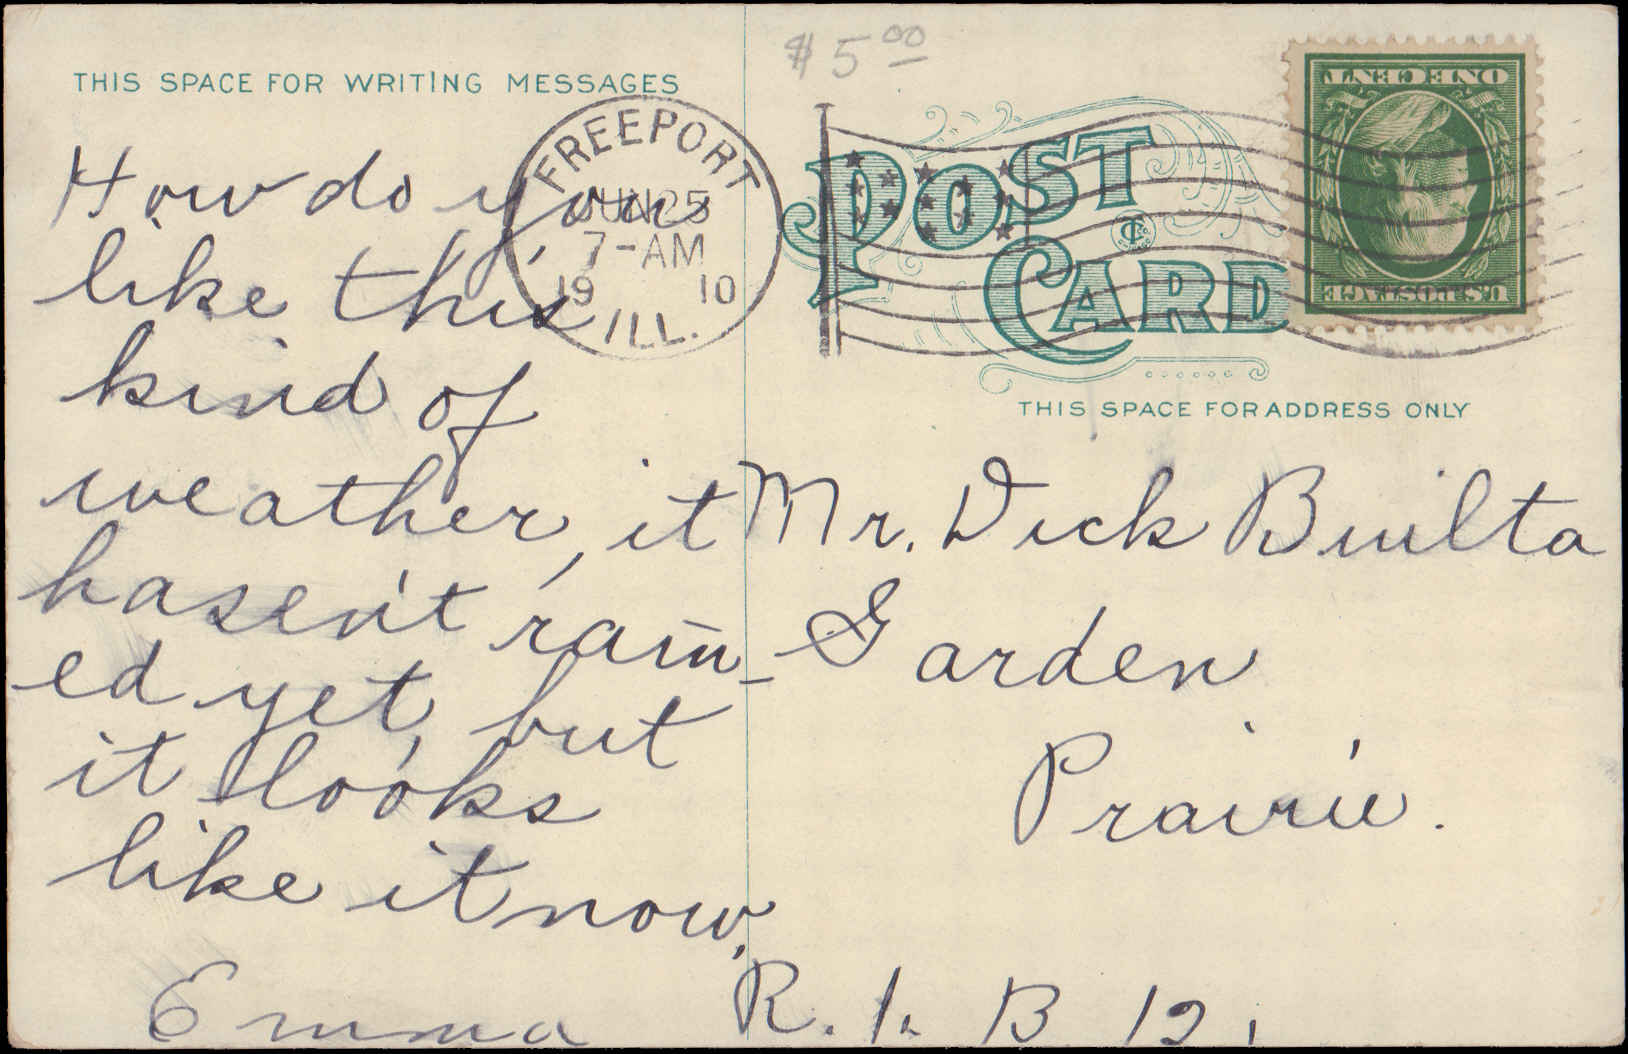 $5.00
THIS SPACE FOR WRITING MESSAGES
How do you
like this
kind of
weather, it
hasen't rain-
ed yet, but
it looks
like it now.
Emma
FREEPORT
JUN 25
7-AM
19 10
ILL.
POST
CARD
THIS SPACE FOR ADDRESS ONLY
ONE CENT
U.S. POSTAGE
Mr. Dick Builta
Garden
Prairie.
R. 1. B 12.